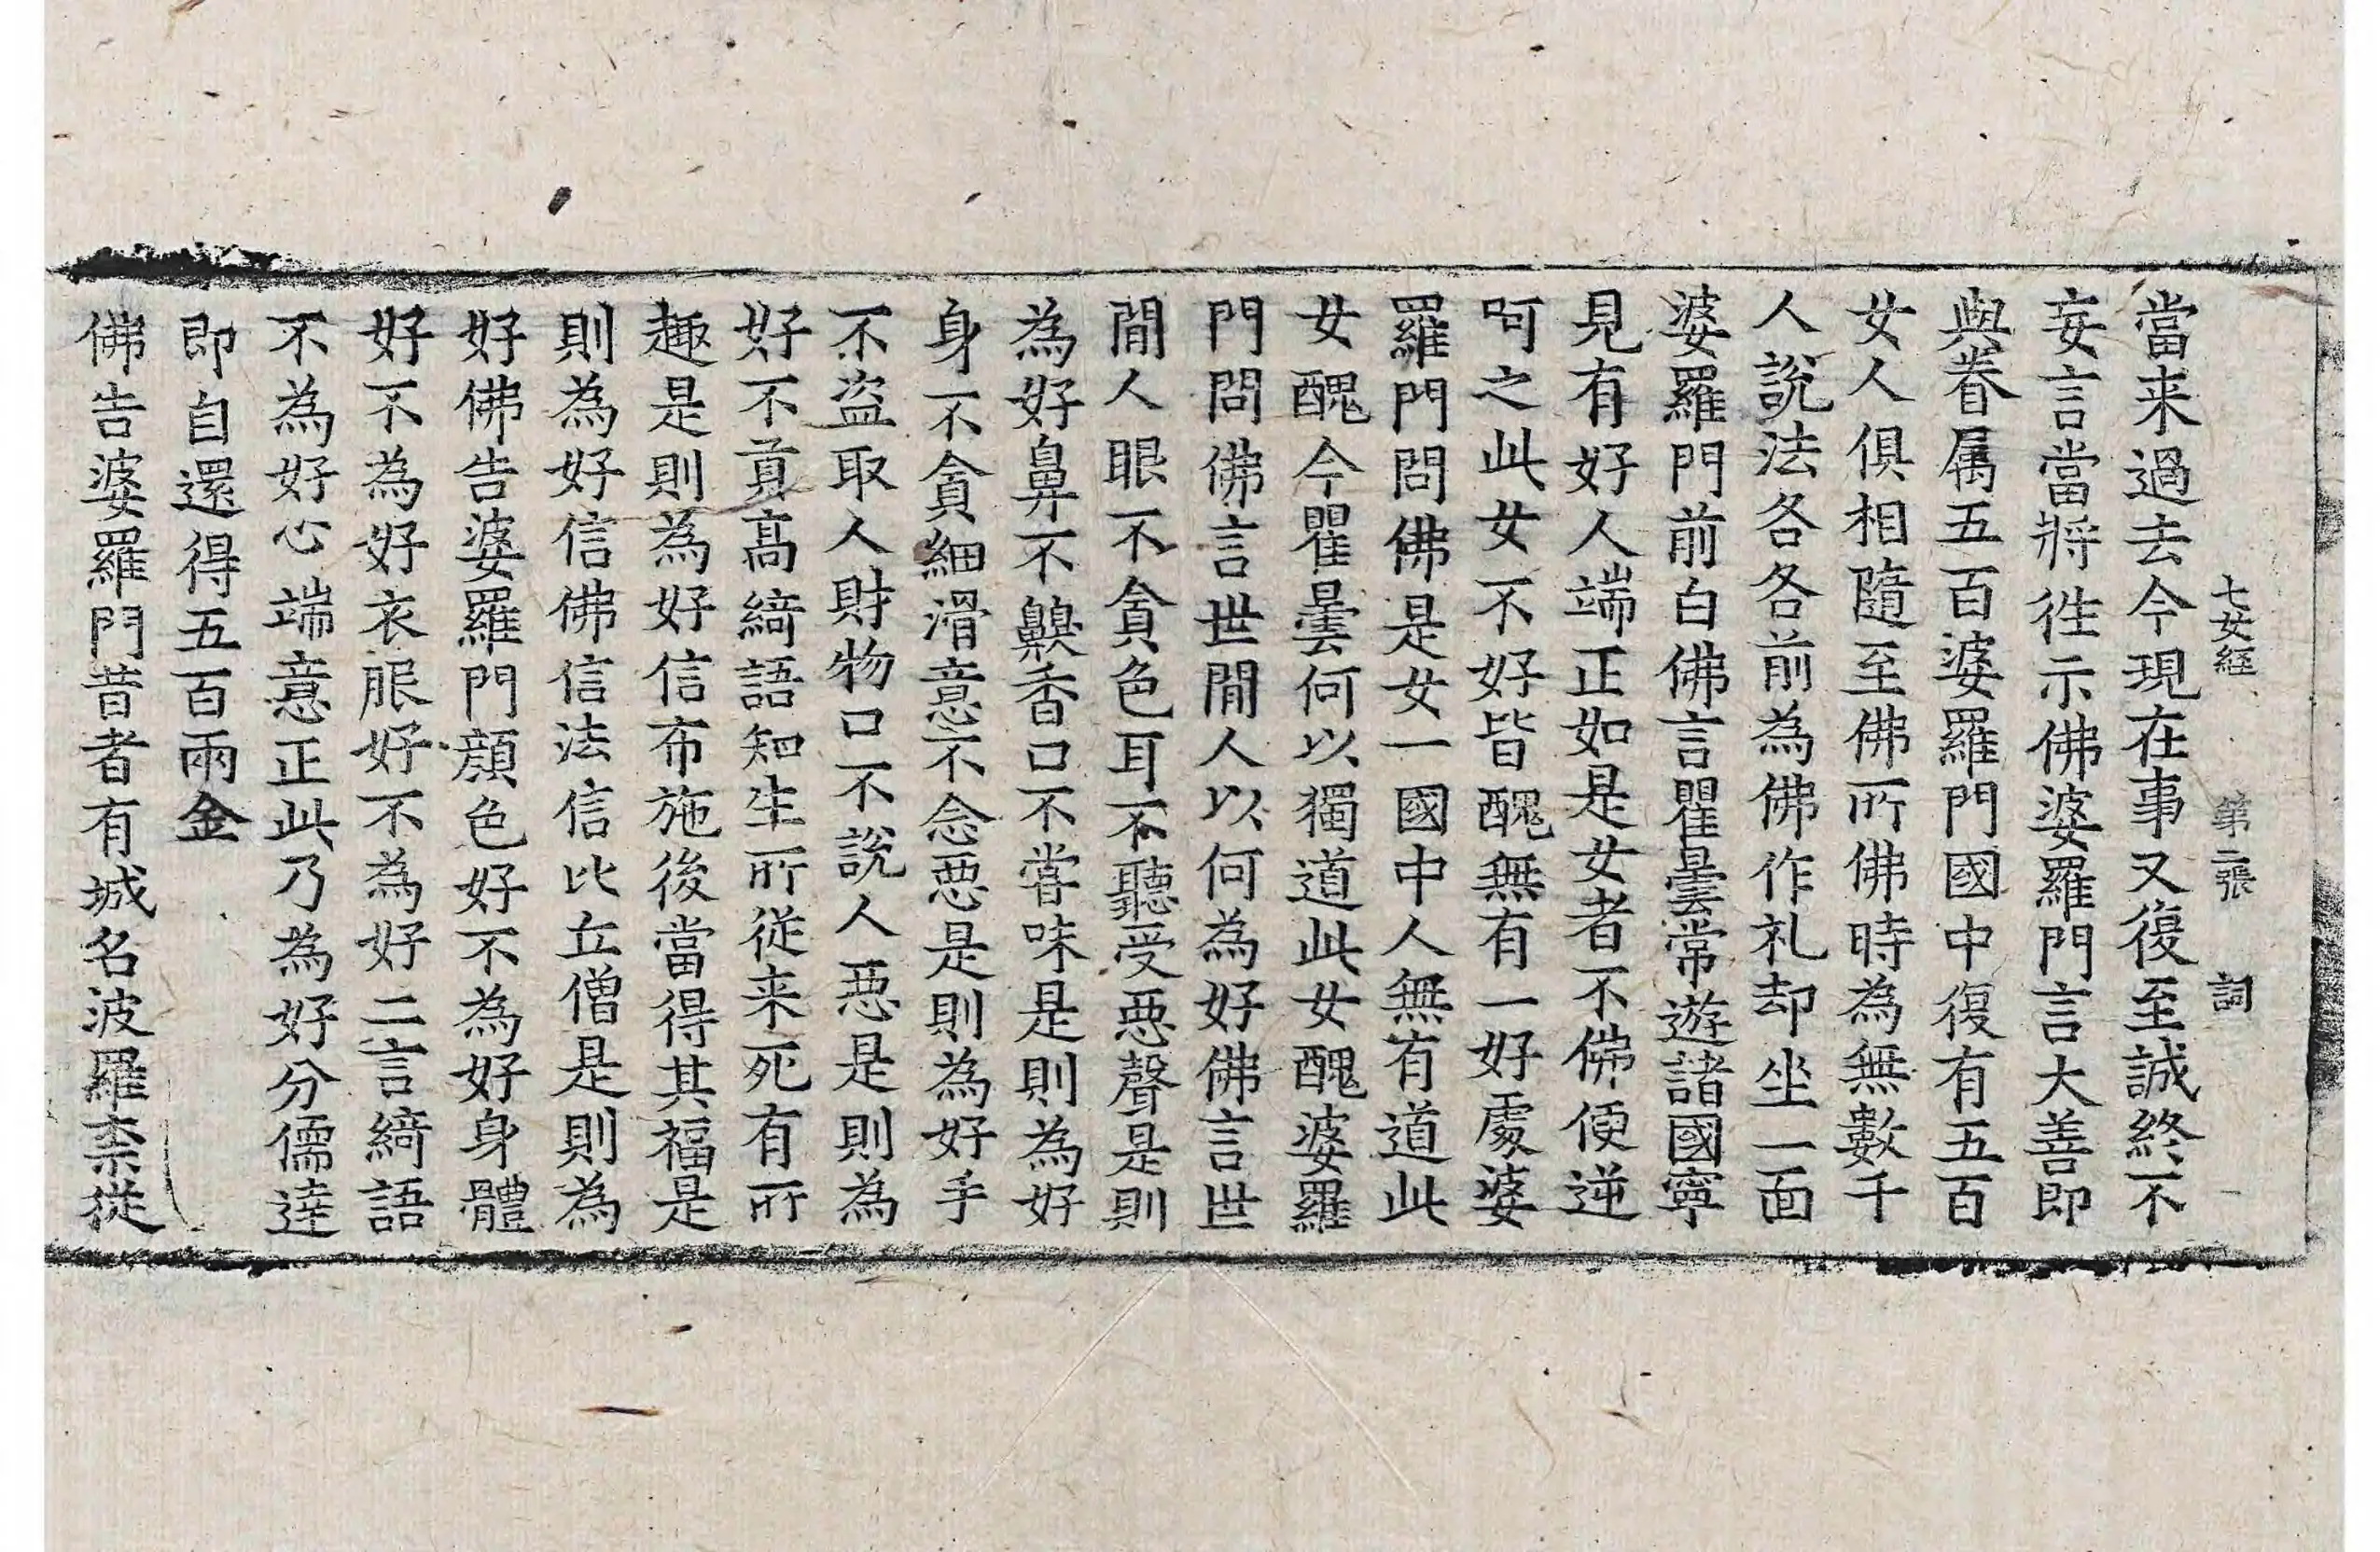 七女經 第二張 詞
當来過去今現在事又復至誠終不
妄言當將徃示佛婆羅門言大善即
與眷属五百婆羅門國中復有五百
女人俱相隨至佛所佛時為無數千
人說法各各前為佛作礼却坐一面
婆羅門前白佛言瞿曇常遊諸國寧
見有好人端正如是女者不佛便逆
呵之此女不好皆醜無有一好處婆
羅門問佛是女一國中人無有道此
女醜今瞿曇何以獨道此女醜婆羅
門問佛言世間人以何為好佛言世
間人眼不貪色耳不聽受惡聲是則
為好鼻不齅香口不甞味是則為好
身不貪細滑意不念惡是則為好手
不盜取人財物口不說人惡是則為
好不貢高綺語知生所從来死有所
趣是則為好信布施後當得其福是
則為好信佛信法信比丘僧是則為
好佛告婆羅門顔色好不為好身體
好不為好衣服好不為好二言綺語
不為好心端意正此乃為好分儒達
即自還得五百兩金
佛告婆羅門昔者有城名波羅柰從